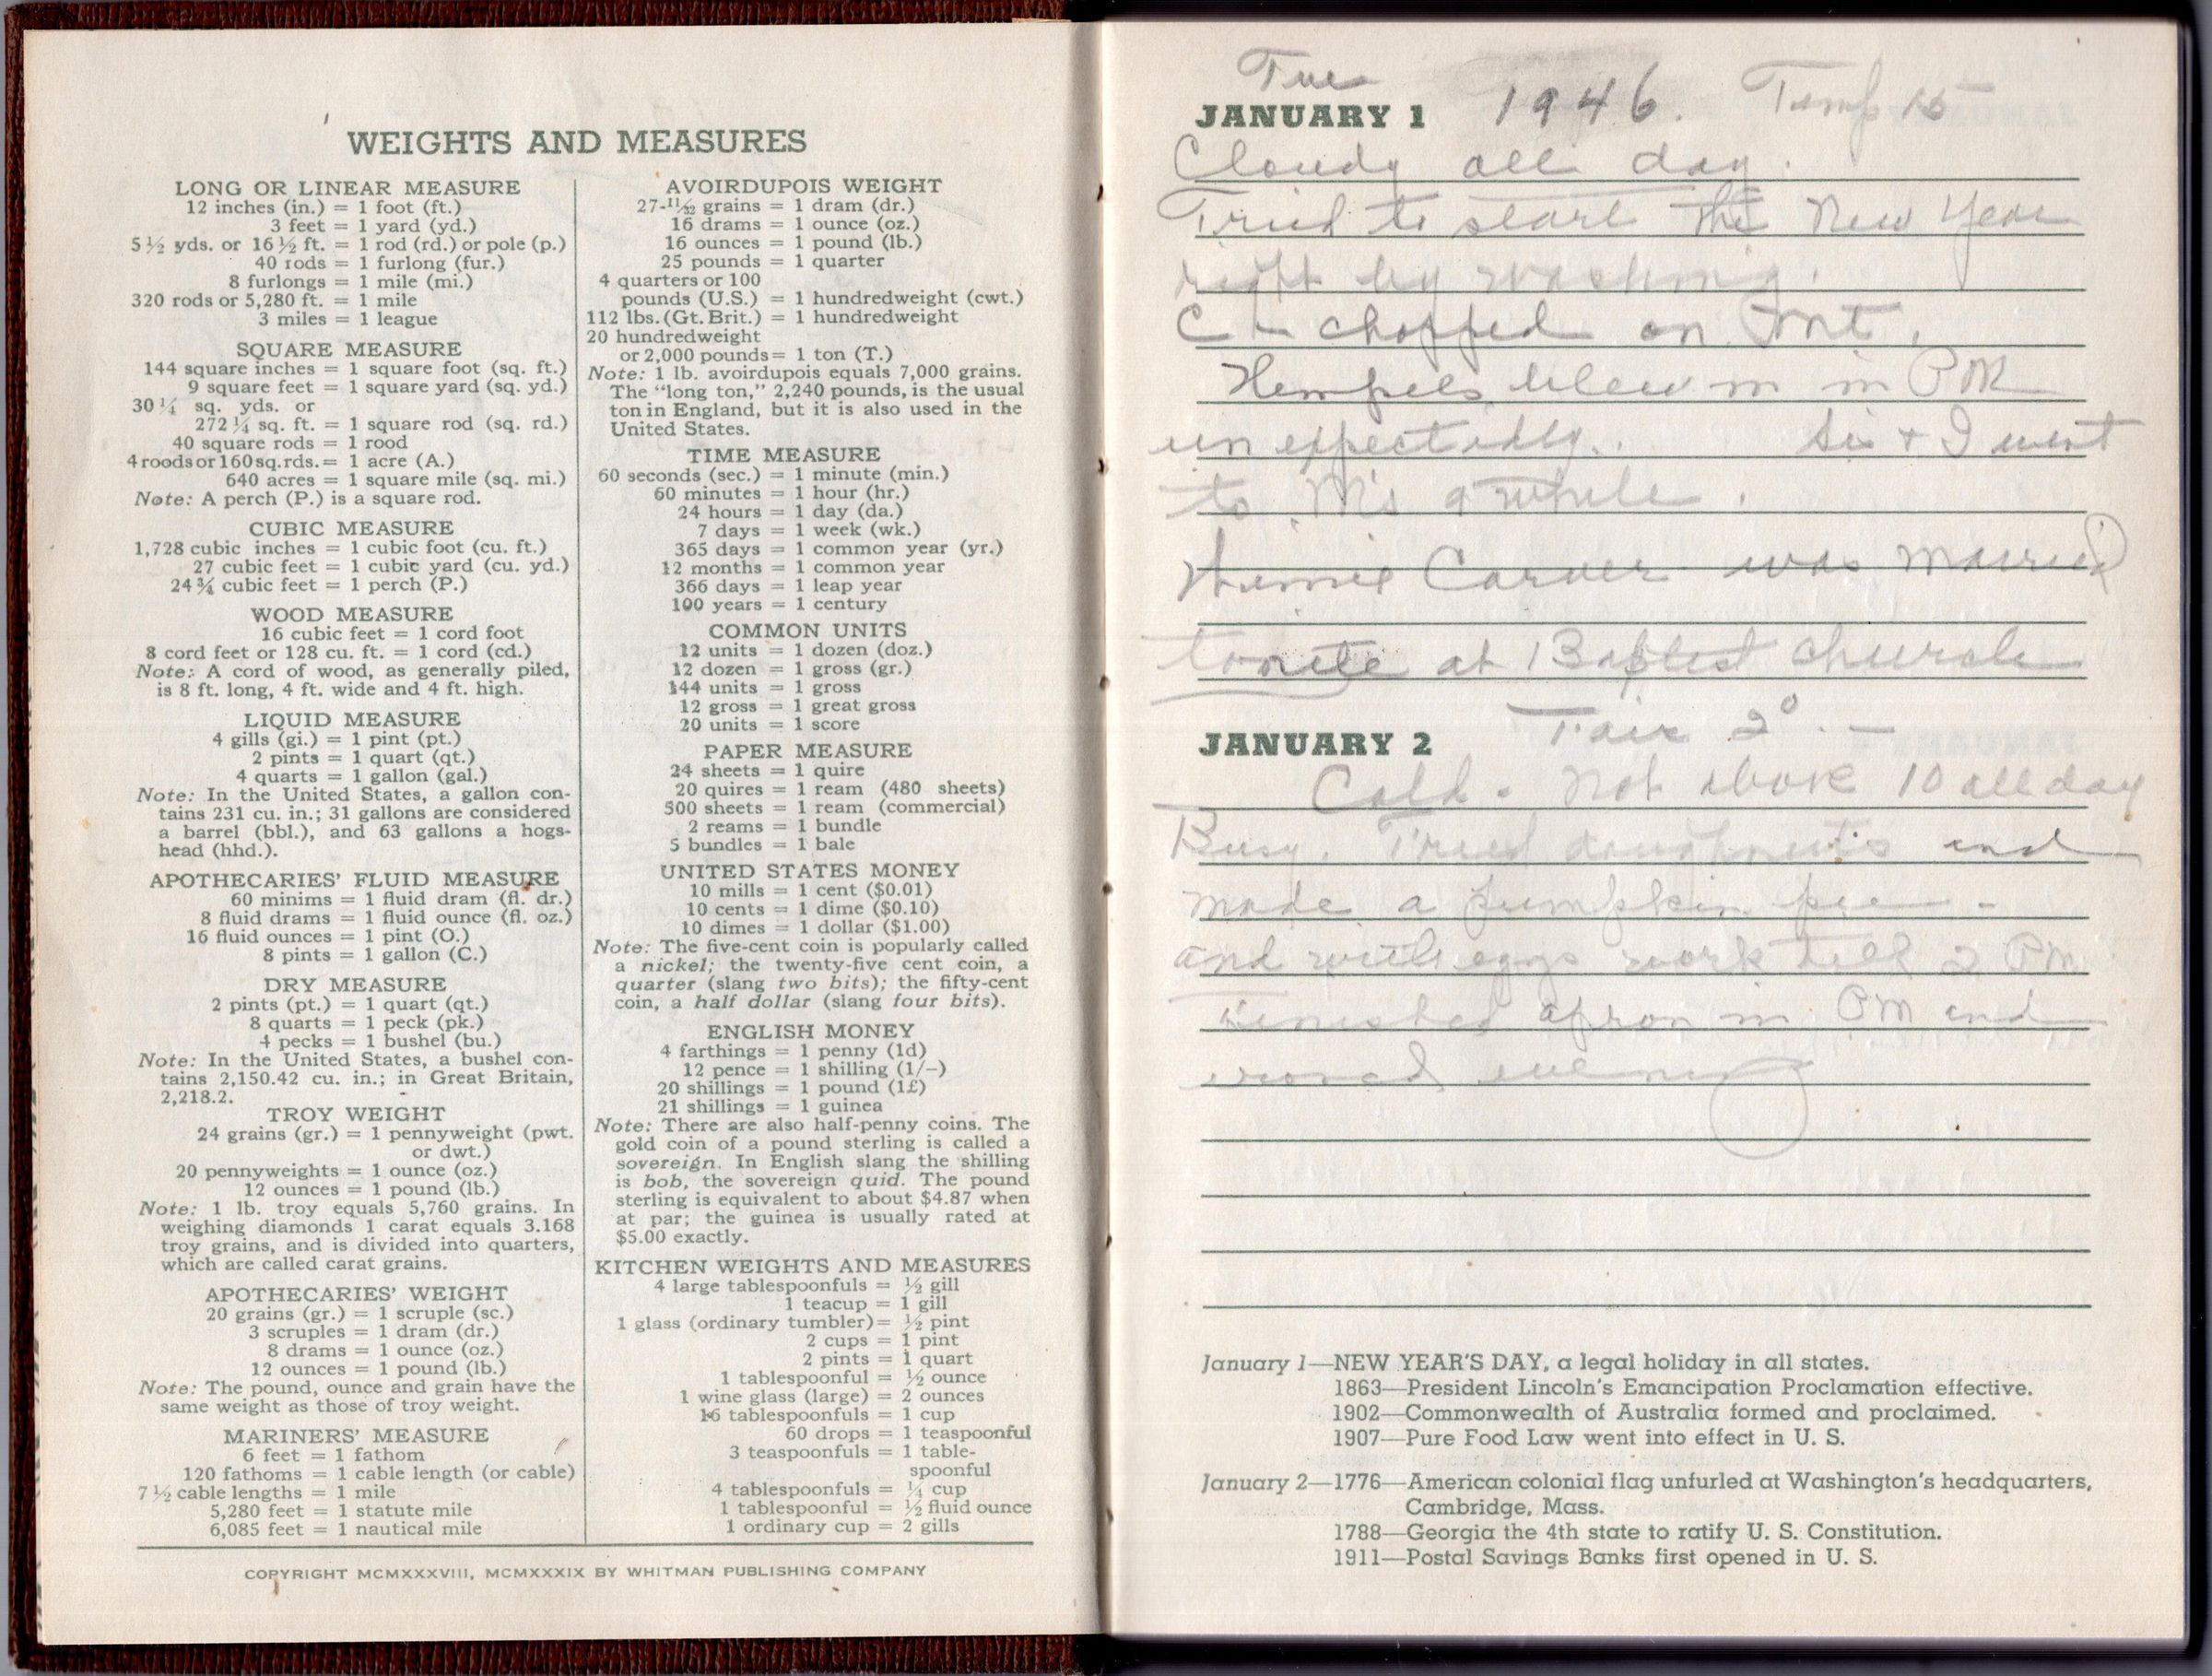 WEIGHTS AND MEASURES
LONG OR LINEAR MEASURE
12 inches (in.) = 1 foot (ft.)
3 feet = 1 yard (yd.)
5½ yds. or 16½ ft. = 1 rod (rd.) or pole (p.)
40 rods = 1 furlong (fur.)
8 furlongs = 1 mile (mi.)
320 rods or 5,280 ft. = 1 mile
3 miles = 1 league
SQUARE MEASURE
144 square inches = 1 square foot (sq. ft.)
9 square feet = 1 square yard (sq. yd.)
30¼ sq. yds. or
272¼ sq. ft. = 1 square rod (sq. rd.)
40 square rods = 1 rood
4 roods or 160 sq. rds. = 1 acre (A.)
640 acres = 1 square mile (sq. mi.)
Note: A perch (P.) is a square rod.
CUBIC MEASURE
1,728 cubic inches = 1 cubic foot (cu. ft.)
27 cubic feet = 1 cubic yard (cu. yd.)
24¾ cubic feet = 1 perch (P.)
WOOD MEASURE
16 cubic feet = 1 cord foot
8 cord feet or 128 cu. ft. = 1 cord (cd.)
Note: A cord of wood, as generally piled,
is 8 ft. long, 4 ft. wide and 4 ft. high.
LIQUID MEASURE
4 gills (gi.) = 1 pint (pt.)
2 pints = 1 quart (qt.)
4 quarts = 1 gallon (gal.)
Note: In the United States, a gallon con-
tains 231 cu. in.; 31 gallons are considered
a barrel (bbl.), and 63 gallons a hogs-
head (hhd.).
APOTHECARIES' FLUID MEASURE
60 minims = 1 fluid dram (fl. dr.)
8 fluid drams = 1 fluid ounce (fl. oz.)
16 fluid ounces = 1 pint (O.)
8 pints = 1 gallon (C.)
DRY MEASURE
2 pints (pt.) = 1 quart (qt.)
8 quarts = 1 peck (pk.)
4 pecks = 1 bushel (bu.)
Note: In the United States, a bushel con-
tains 2,150.42 cu. in.; in Great Britain,
2,218.2.
TROY WEIGHT
24 grains (gr.) = 1 pennyweight (pwt.
or dwt.)
20 pennyweights = 1 ounce (oz.)
12 ounces = 1 pound (lb.)
Note: 1 lb. troy equals 5,760 grains. In
weighing diamonds 1 carat equals 3.168
troy grains, and is divided into quarters,
which are called carat grains.
APOTHECARIES' WEIGHT
20 grains (gr.) = 1 scruple (sc.)
3 scruples = 1 dram (dr.)
8 drams = 1 ounce (oz.)
12 ounces = 1 pound (lb.)
Note: The pound, ounce and grain have the
same weight as those of troy weight.
MARINERS' MEASURE
6 feet = 1 fathom
120 fathoms = 1 cable length (or cable)
7½ cable lengths = 1 mile
5,280 feet = 1 statute mile
6,085 feet = 1 nautical mile
AVOIRDUPOIS WEIGHT
27-11/32 grains = 1 dram (dr.)
16 drams = 1 ounce (oz.)
16 ounces = 1 pound (lb.)
25 pounds = 1 quarter
4 quarters or 100
pounds (U.S.) = 1 hundredweight (cwt.)
112 lbs. (Gt. Brit.) = 1 hundredweight
20 hundredweight
or 2,000 pounds = 1 ton (T.)
Note: 1 lb. avoirdupois equals 7,000 grains.
The "long ton," 2,240 pounds, is the usual
ton in England, but it is also used in the
United States.
TIME MEASURE
60 seconds (sec.) = 1 minute (min.)
60 minutes = 1 hour (hr.)
24 hours = 1 day (da.)
7 days = 1 week (wk.)
365 days = 1 common year (yr.)
12 months = 1 common year
366 days = 1 leap year
100 years = 1 century
COMMON UNITS
12 units = 1 dozen (doz.)
12 dozen = 1 gross (gr.)
144 units = 1 gross
12 gross = 1 great gross
20 units = 1 score
PAPER MEASURE
24 sheets = 1 quire
20 quires = 1 ream (480 sheets)
500 sheets = 1 ream (commercial)
2 reams = 1 bundle
5 bundles = 1 bale
UNITED STATES MONEY
10 mills = 1 cent ($0.01)
10 cents = 1 dime ($0.10)
10 dimes = 1 dollar ($1.00)
Note: The five-cent coin is popularly called
a nickel; the twenty-five cent coin, a
quarter (slang two bits); the fifty-cent
coin, a half dollar (slang four bits).
ENGLISH MONEY
4 farthings = 1 penny (1d)
12 pence = 1 shilling (1/–)
20 shillings = 1 pound (1£)
21 shillings = 1 guinea
Note: There are also half-penny coins. The
gold coin of a pound sterling is called a
sovereign. In English slang the shilling
is bob, the sovereign quid. The pound
sterling is equivalent to about $4.87 when
at par; the guinea is usually rated at
$5.00 exactly.
KITCHEN WEIGHTS AND MEASURES
4 large tablespoonfuls = ½ gill
1 teacup = 1 gill
1 glass (ordinary tumbler) = ½ pint
2 cups = 1 pint
2 pints = 1 quart
1 tablespoonful = ½ ounce
1 wine glass (large) = 2 ounces
16 tablespoonfuls = 1 cup
60 drops = 1 teaspoonful
3 teaspoonfuls = 1 table-
spoonful
4 tablespoonfuls = ¼ cup
1 tablespoonful = ½ fluid ounce
1 ordinary cup = 2 gills
COPYRIGHT MCMXXXVIII, MCMXXXIX BY WHITMAN PUBLISHING COMPANY
Tue
JANUARY 1 1946. Temp 15
Cloudy all day.
Tried to start the New Year
right by washing.
C – chopped on Mt.
Hempels blew in in PM
unexpectedly. Sis + I went
to M's awhile.
Carver was married
tonite at Baptist church
Fair 2° –
JANUARY 2
Cold. Not above 10 all day
Busy. Fried doughnuts and
made a pumpkin pie –
and with eggs work till 2 PM
Finished apron in PM and
evening
January 1—NEW YEAR'S DAY, a legal holiday in all states.
1863—President Lincoln's Emancipation Proclamation effective.
1902—Commonwealth of Australia formed and proclaimed.
1907—Pure Food Law went into effect in U. S.
January 2—1776—American colonial flag unfurled at Washington's headquarters,
Cambridge, Mass.
1788—Georgia the 4th state to ratify U. S. Constitution.
1911—Postal Savings Banks first opened in U. S.